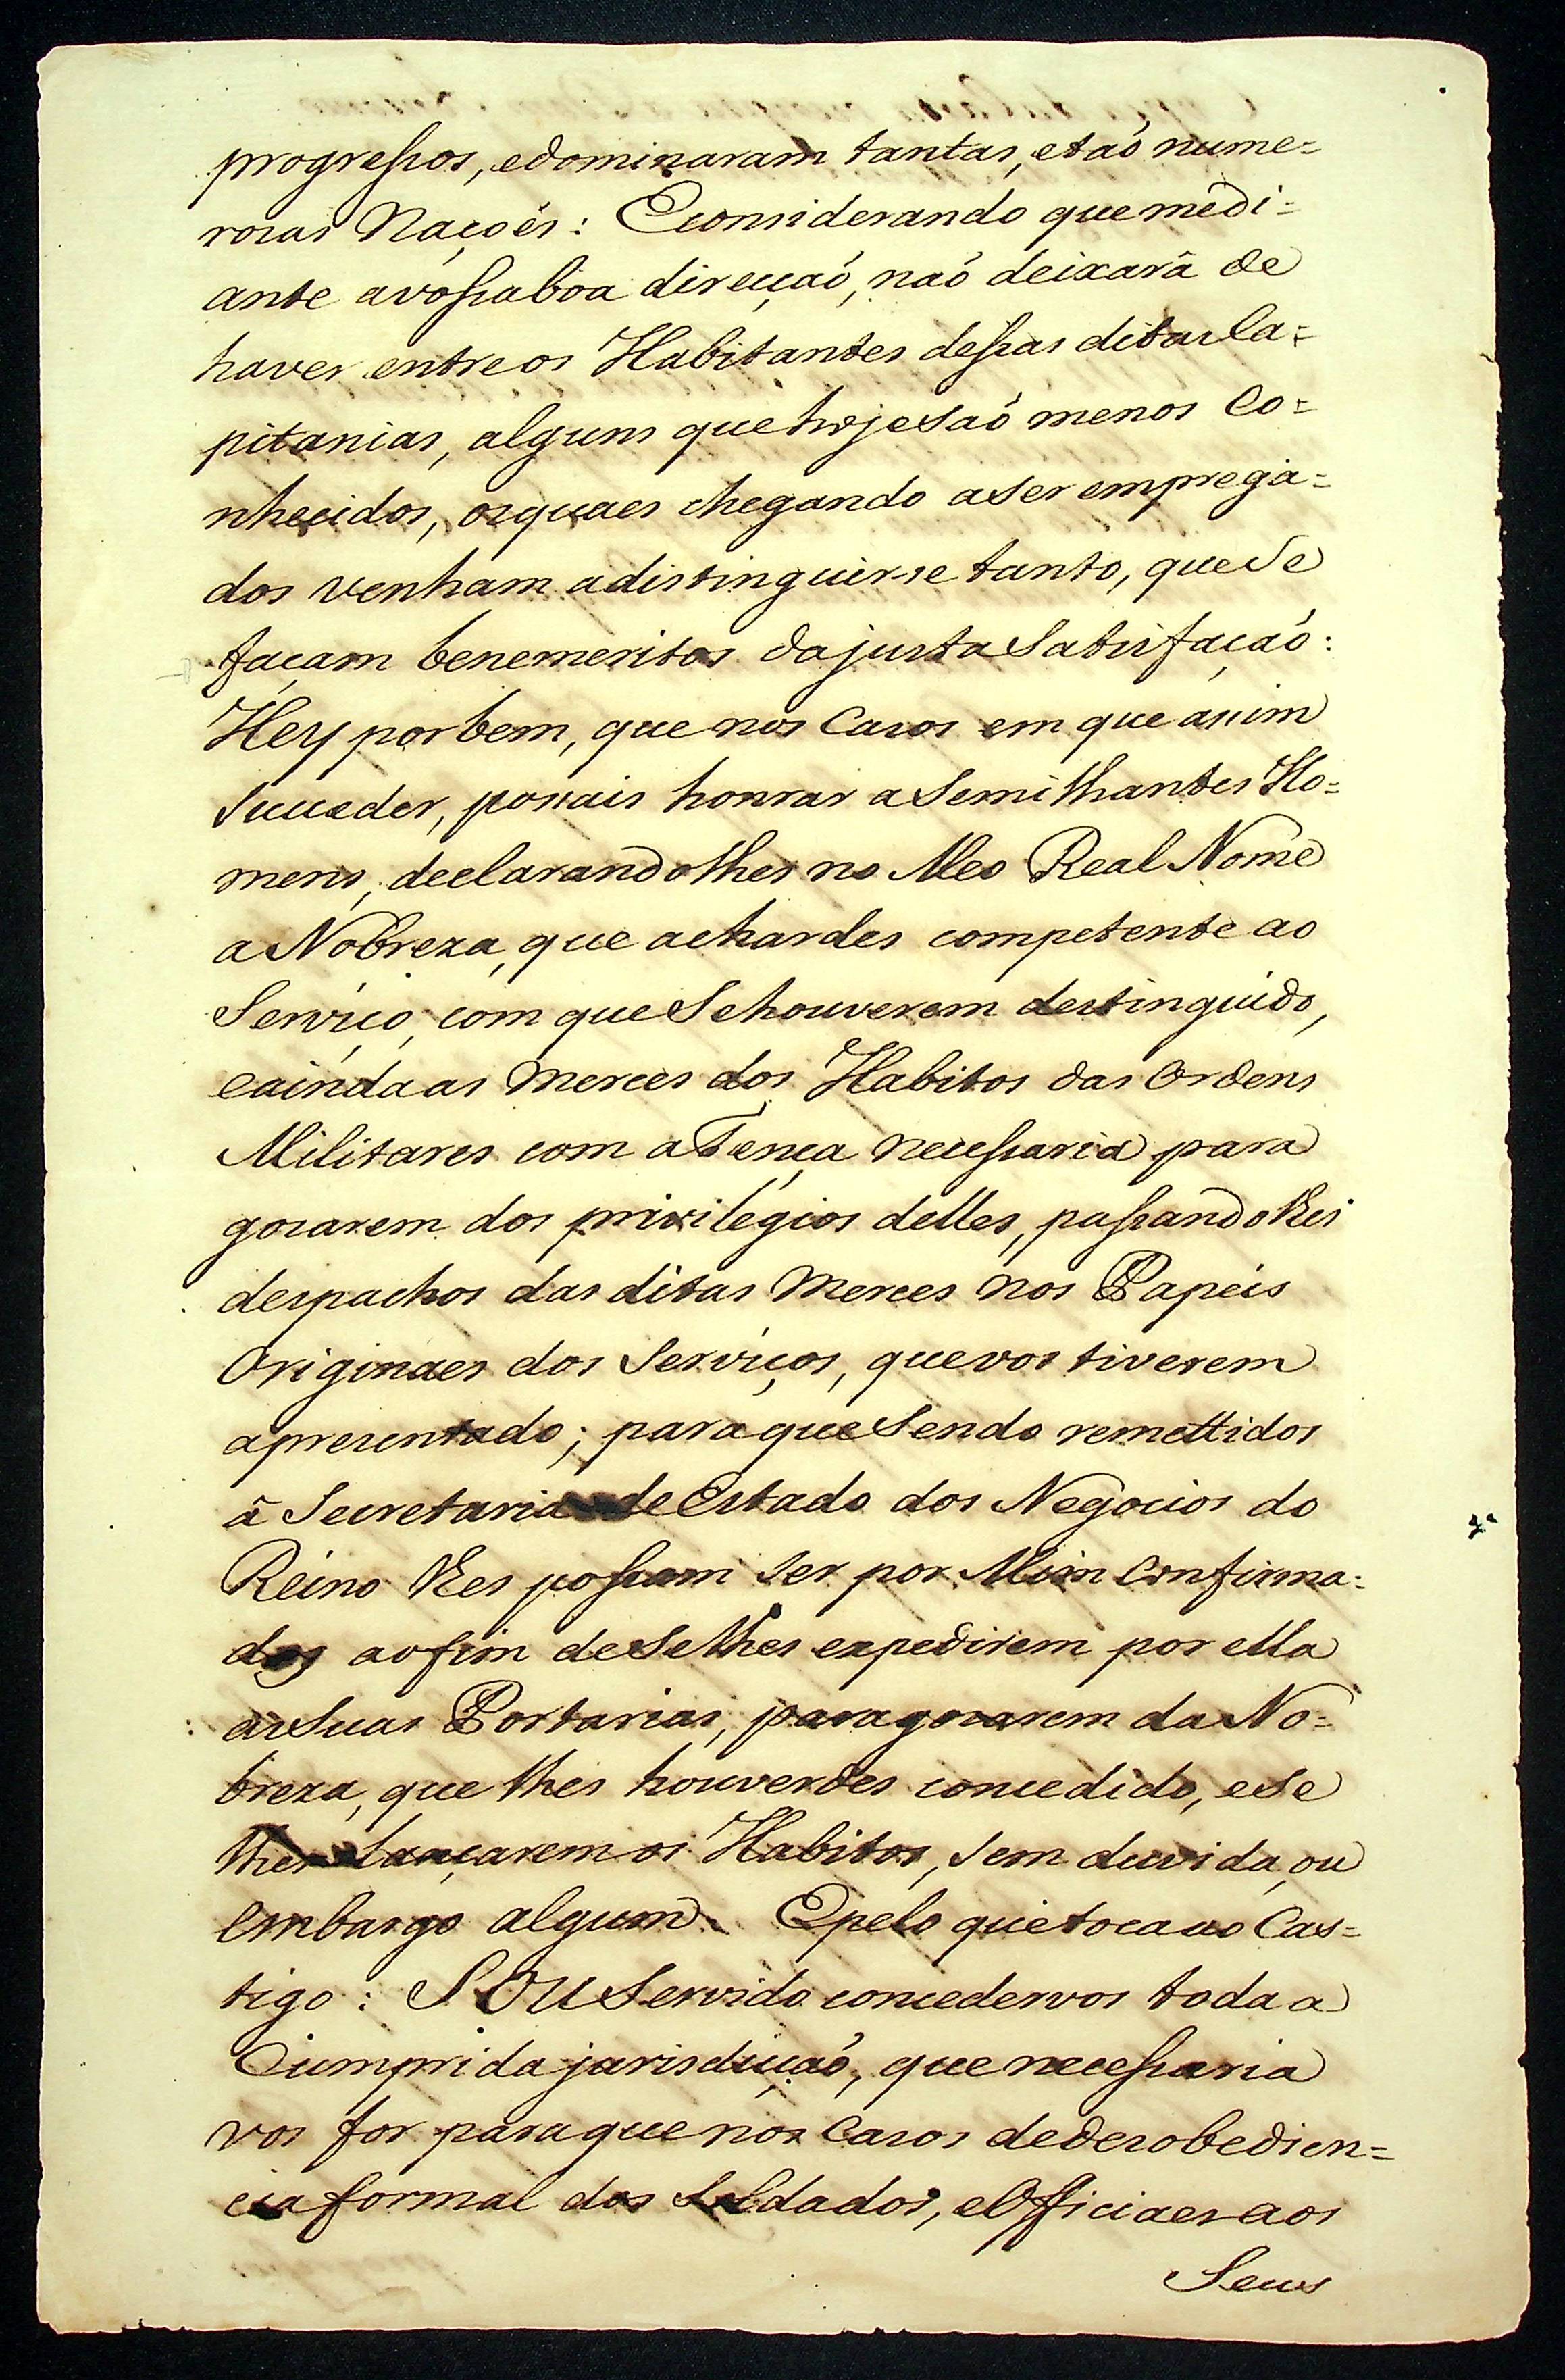 progressos, edominaram tantas, etaõ nume=
rosas Naçoẽs: Econsiderando quemedi=
ante avossaboa direcçaõ, naõ deixarâ de
haver entreos Habitantes dessas ditasCa=
pitanias, alguns quehojesaõ menos Co=
nhecidos, osquaes chegando aser emprega=
dos venham adistinguir-se tanto, quese
façam benemeritos dajustaSatisfaçaõ:
Hey porbem, que nos Casos em que assim
Succeder, possais honrar aSemilhantes Ho=
mens, declarandolhes no Meo Real Nome
a Nobreza, que achardes competente ao
Serviço, com queSehouverem destinguido,
eaindaas Merces dos Habitos das Ordens
Militares com aTença necessaria para
gosarem dos privilegios delles, passandolhes
despachos das ditas Merces nos Papeis
Originaes dos Serviços, quevos tiverem
apresentado; paraqueSendo remettidos
â Secretaria de Estado dos Negocios do
Reino lhes possam ser por Mim Confirma=
dos aofim deSelhes expedirem por ella
asSuas Portarias, paragosarem da No=
breza, que lhes houverdes concedido, ese
lhes Lançarem os Habitos, Sem duvida, ou
Embargo algum. Epelo quetocaao Cas=
tigo: SOU Servido concedervos toda a
Cumprida jurisdicçaõ, que necessaria
vos for paraque nos Casos dedesobedien=
cia formal dos Soldados, eOfficiaes aos
Seus